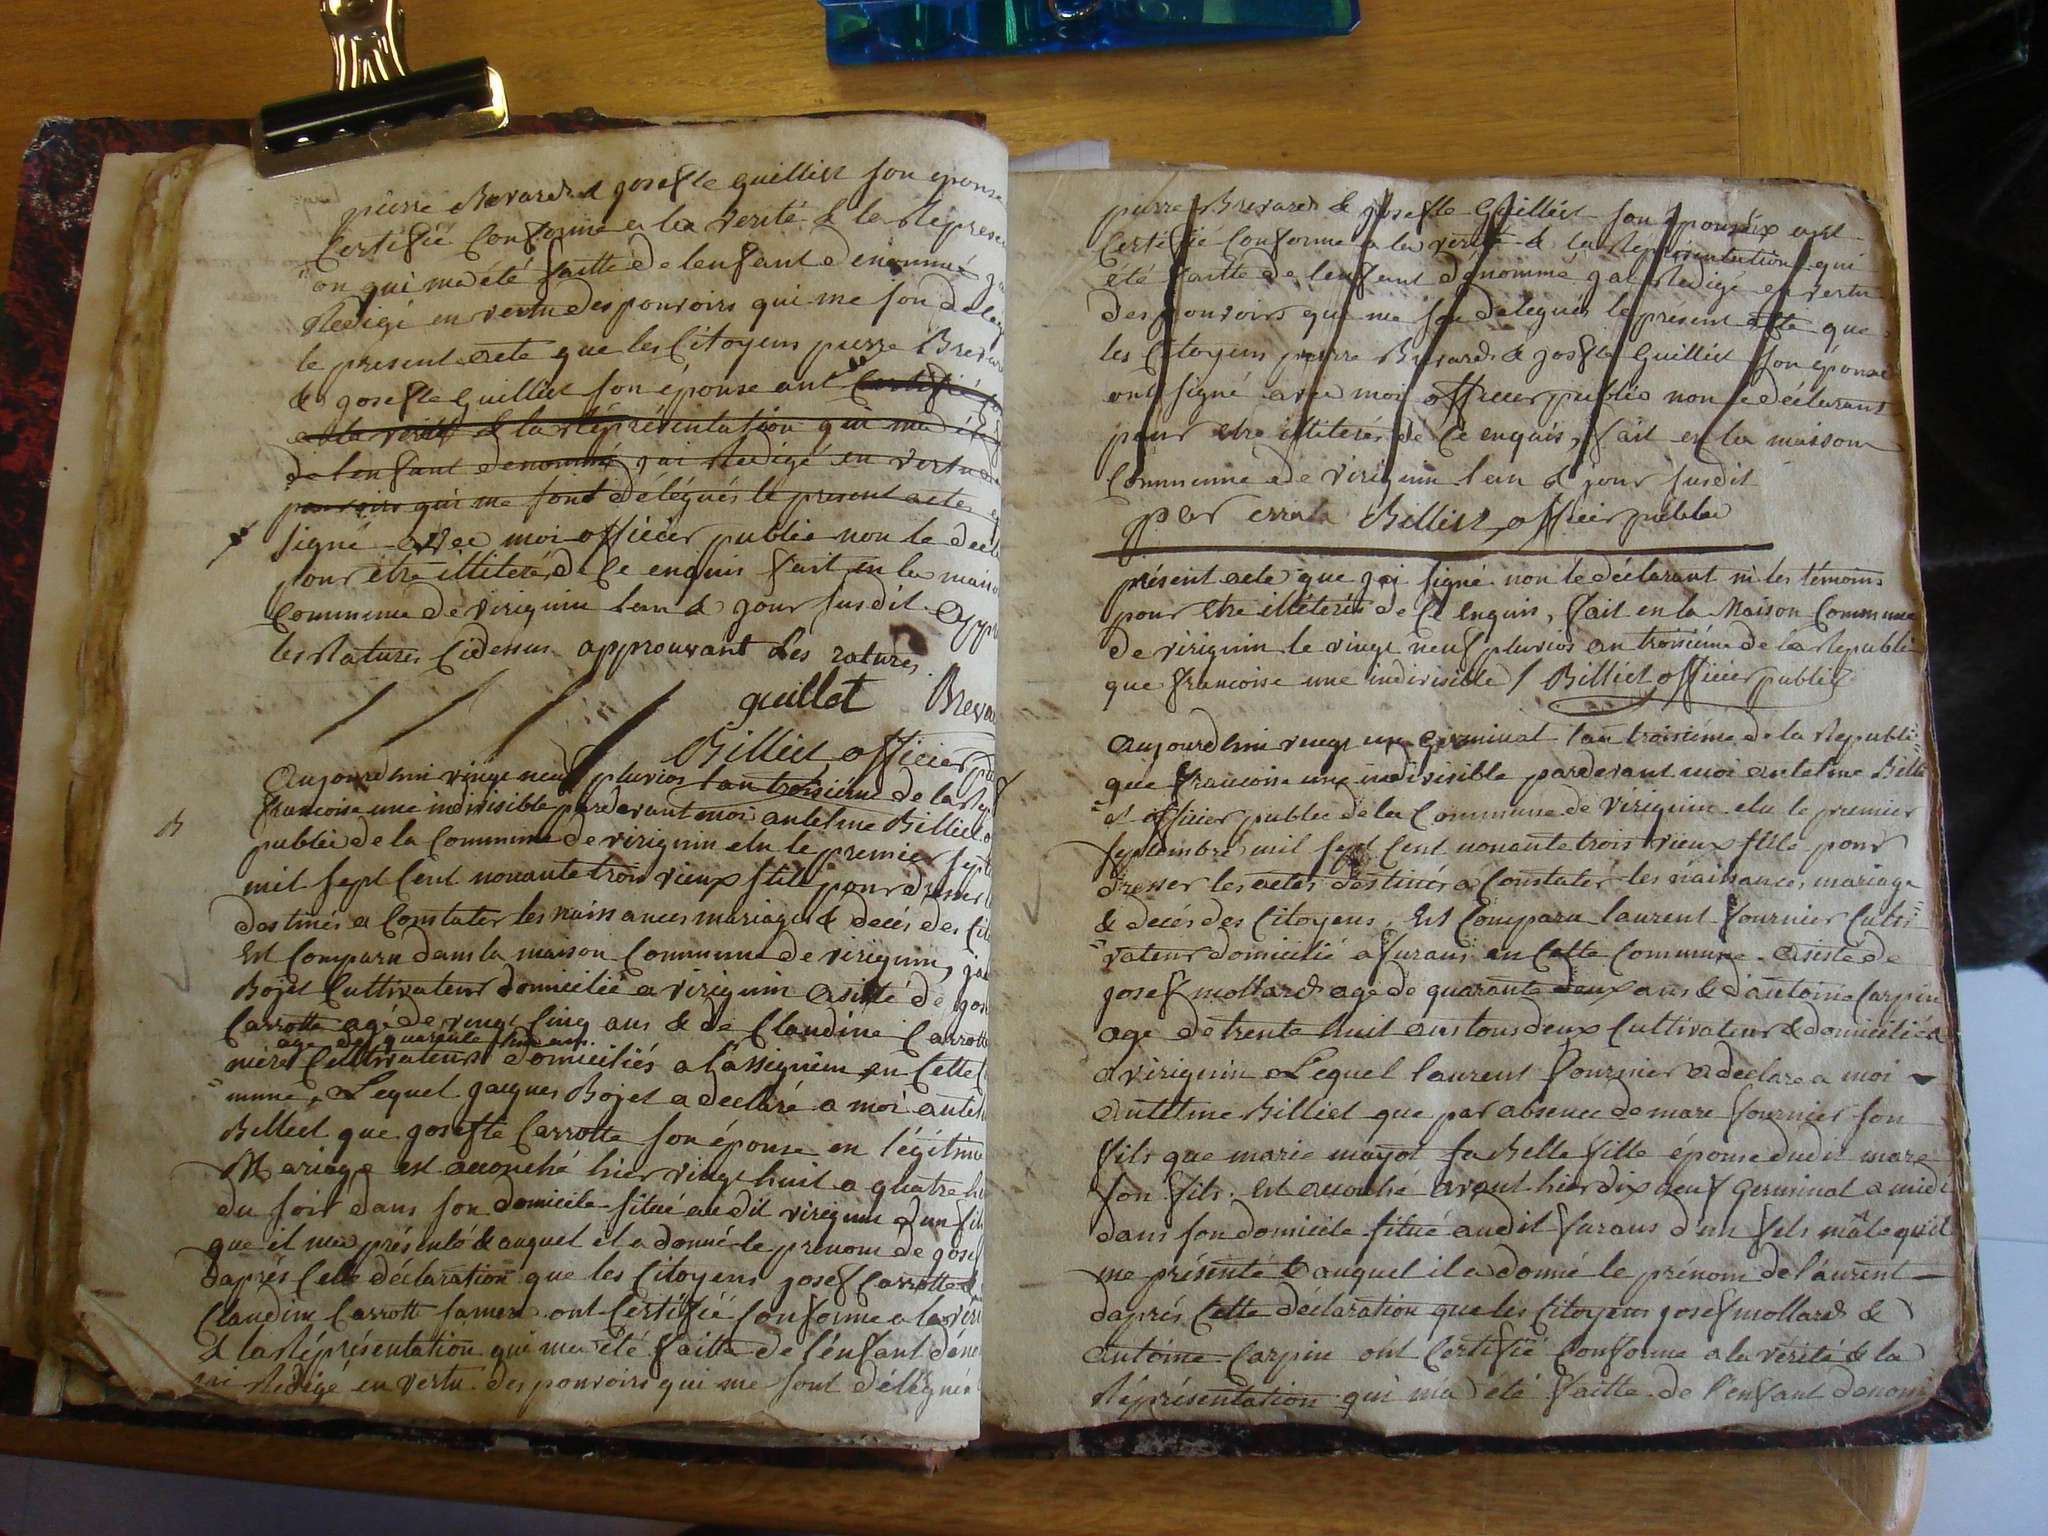 pierre Brevard & josefte Guilliet son epouse
Certifié Conforme a la verité & la Represen
on qui ma été faitte de lenfant denommé
Redigé en vertu des pouvoirs qui me son deleg
le present acte que les Citoyens pierre Brevar
& josefte Guilliet son épouse ont Certifié
a la verité & la Réprésentation qui ma été
de lenfant denommé jai Redigé en vertu
pouvoirs qui me sont délégués le present acte
signé avec moi officier public non le decl
pour etre illiteré de Ce enquis fait en la maiso
Commune de virignin lan & jour susdit App
les Ratures Cidessus approuvant les ratures
guillet Breva
Billiet officier pu
Aujourdhui vingt neuf pluvios lan troisiéme de la Rep
francoise une indivisible pardevant moi antelme Billiet
public de la Commune de virignin elu le premier sept
mil sept Cent nonante trois vieux stile pour dresser
destinés a Constater les naissances mariages & decés des Cit
Est Comparu dans la maison Commune de virignin, ja
Bojet Cultivateur domicilié a virignin Asisté de jos
Carrotte agé de vingt Cinq ans & de Claudine Carrott
age de quarante ans
mere Cultivateurs domiciliés a lassignieu en Cette C
mune, Lequel jacques Bojet a declaré a moi antel
Billiet que josefte Carrotte son épouse en légitime
Mariage est acouché hier vingt huit a quatre he
du soir dans son domicile situé audit virignin dun fil
que il ma présenté & auquel il a donné le prenom de jose
daprés Cette déclaration que les Citoyens josef Carrotte &
Claudine Carrott samere ont Certifié Conforme a la veri
& la Réprésentation qui ma été faitte de lénfant déno
jai Redigé en vertu des pouvoirs qui me sont délégués
B
pierre Brevard & josefte Guilliet son epouse
Certifié Conforme a la verité & la Représentation qui
été faitte de lenfant dénommé jai Redigé en vertu
des pouvoirs qui me son delegués le présent acte que
les Citoyens pierre Brevard & josfte Guilliet son épouse
ont signé avec moi officier public non le déclarant
pour etre illiteré de Ce enquis, fait en la maison
Commune de virignin lan & jour susdit
par errata Billiet officier public
présent acte que jai signé non le déclarant ni les témoins
pour etre illéterés de Ce Enquis, fait en la Maison Commune
de virignin le vingt neuf pluvios an troisiéme de la Republi
que francoise une indivisible / Billiet officier public
Aujourdhui vingt un Germinal lan troisiéme de la Republi
que francoise une indivisible pardevant moi antelme Billi
et officier public de la Commune de virignin elu le premier
septembre mil sept Cent nonante trois vieux stile pour
dresser les actes destinés a Constater les naissances, mariage
& decés des Citoyens, Est Comparu laurent fournier Culti
vateur domicilié a furans en Cette Commune Asisté de
josef mollard agé de quarante deux ans & d'antoine Carpin
age de trente huit ans tous deux Cultivateur & domiciliés
a virignin Lequel laurent fournier a declaré a moi
antelme Billiet que par absence de marc fournier son
fils que marie mayot sa Belle fille épouse dudit marc
son fils. Est acouché avant hier dix neuf Germinal a midi
dans son domicile situé audit furans d'un fils mâle quil
me présenté & auquel il a donné le prénom de láurent
daprés Cette déclaration que les Citoyens josef mollard &
Antoine Carpin ont Certifié Conforme a la vérité & la
Réprésentation qui ma été faitte de l'enfant denom